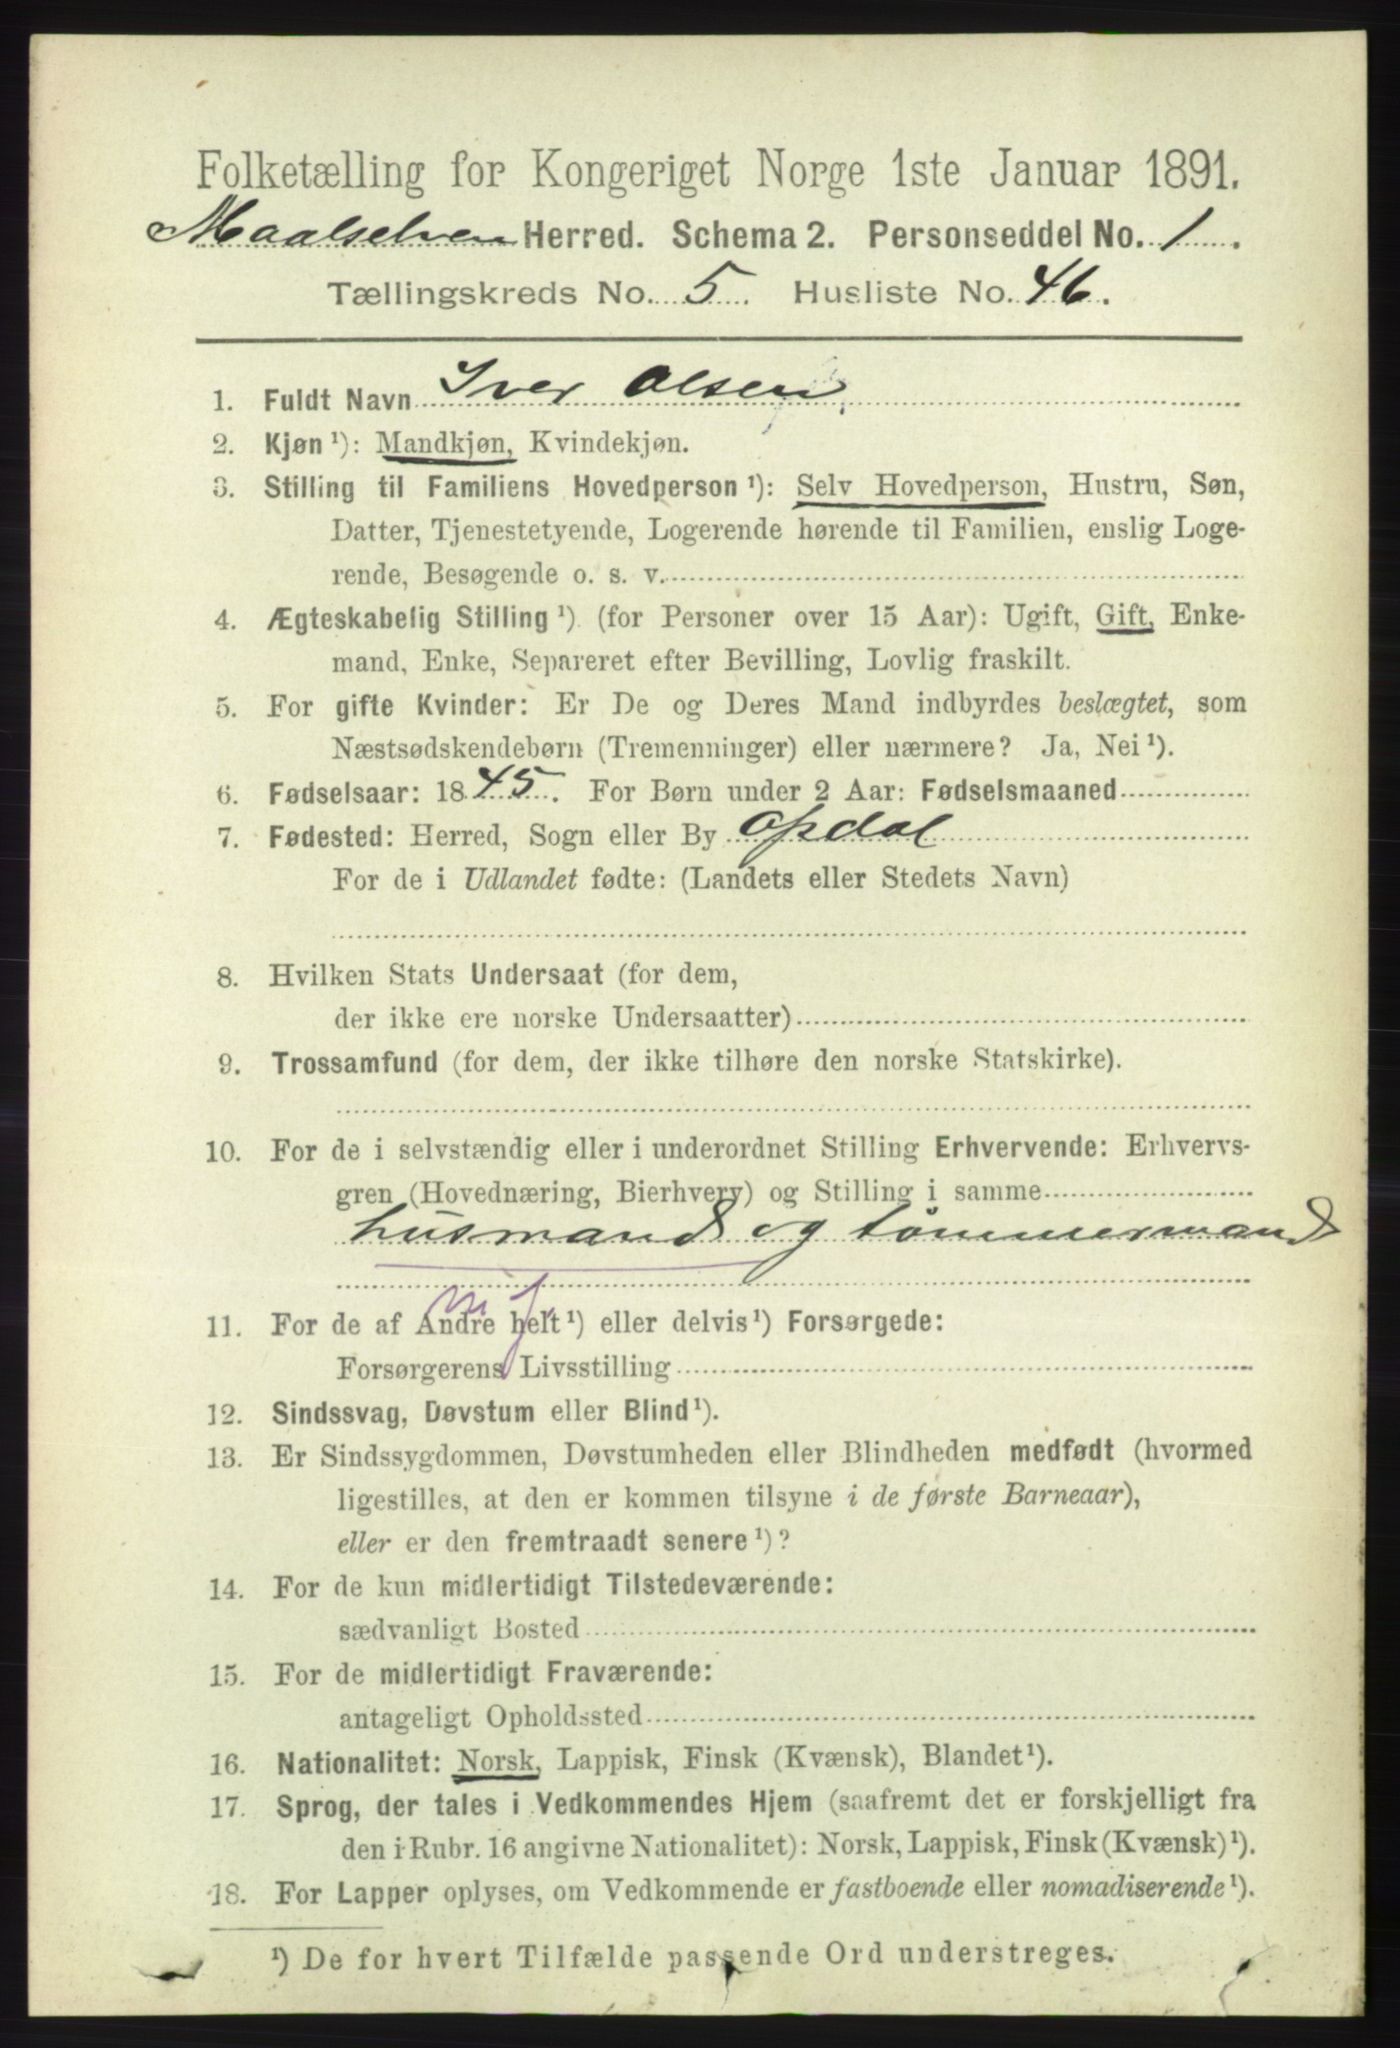 Folketælling for Kongeriget Norge 1ste Januar 1891.
Maalselven Herred. Schema 2. Personseddel No. 1.
Tællingskreds No. 5. Husliste No. 46.
1. Fuldt Navn Iver Olsen
2. Kjøn ¹): Mandkjøn, Kvindekjøn.
3. Stilling til Familiens Hovedperson ¹): Selv Hovedperson, Hustru, Søn,
Datter, Tjenestetyende, Logerende hørende til Familien, enslig Loge-
rende, Besøgende o. s. v.
4. Ægteskabelig Stilling ¹) (for Personer over 15 Aar): Ugift, Gift, Enke-
mand, Enke, Separeret efter Bevilling, Lovlig fraskilt.
5. For gifte Kvinder: Er De og Deres Mand indbyrdes beslægtet, som
Næstsødskendebørn (Tremenninger) eller nærmere? Ja, Nei ¹).
6. Fødselsaar: 1845. For Børn under 2 Aar: Fødselsmaaned
7. Fødested: Herred, Sogn eller By Opdal
For de i Udlandet fødte: (Landets eller Stedets Navn)
8. Hvilken Stats Undersaat (for dem,
der ikke ere norske Undersaatter)
9. Trossamfund (for dem, der ikke tilhøre den norske Statskirke).
10. For de i selvstændig eller i underordnet Stilling Erhvervende: Erhvervs-
gren (Hovednæring, Bierhverv) og Stilling i samme
husmand og tömmermand
11. For de af Andre helt ¹) eller delvis ¹) Forsørgede:
Forsørgerens Livsstilling
12. Sindssvag, Døvstum eller Blind ¹).
13. Er Sindssygdommen, Døvstumheden eller Blindheden medfødt (hvormed
ligestilles, at den er kommen tilsyne i de første Barneaar),
eller er den fremtraadt senere ¹)?
14. For de kun midlertidigt Tilstedeværende:
sædvanligt Bosted
15. For de midlertidigt Fraværende:
antageligt Opholdssted
16. Nationalitet: Norsk, Lappisk, Finsk (Kvænsk), Blandet ¹).
17. Sprog, der tales i Vedkommendes Hjem (saafremt det er forskjelligt fra
den i Rubr. 16 angivne Nationalitet): Norsk, Lappisk, Finsk (Kvænsk) ¹).
18. For Lapper oplyses, om Vedkommende er fastboende eller nomadiserende ¹).
¹) De for hvert Tilfælde passende Ord understreges.